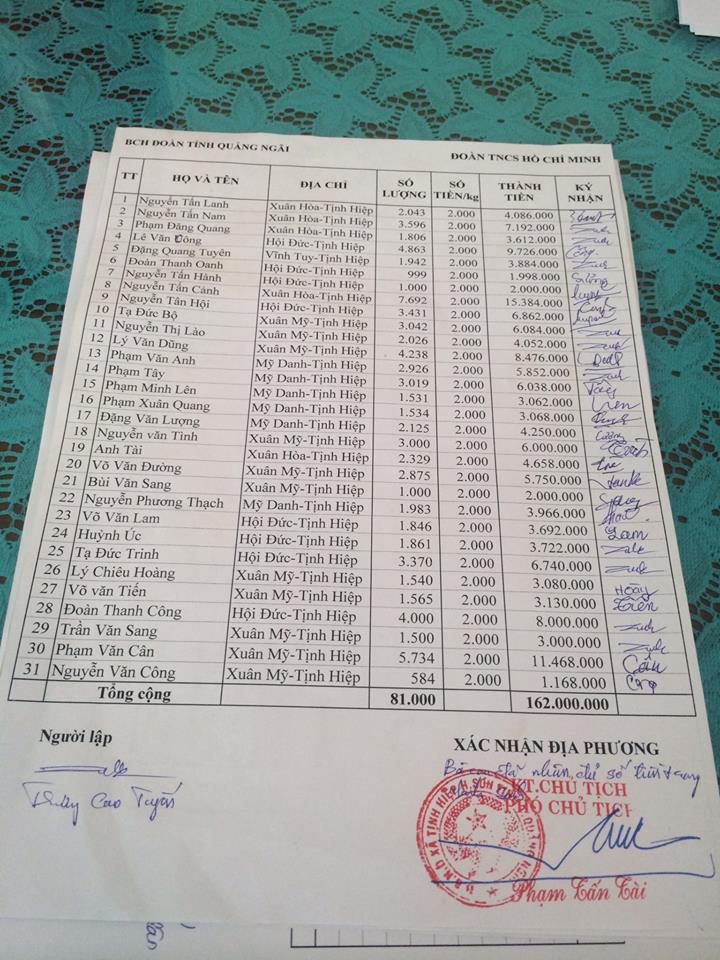 BCH ĐOÀN TỈNH QUẢNG NGÃI ĐOÀN TNCS HỒ CHÍ MINH
TT HỌ VÀ TÊN ĐỊA CHỈ SỐ LƯỢNG SỐ TIỀN/kg THÀNH TIỀN KÝ NHẬN
1 Nguyễn Tấn Lanh Xuân Hòa-Tịnh Hiệp 2.043 2.000 4.086.000
2 Nguyễn Tấn Nam Xuân Hòa-Tịnh Hiệp 3.596 2.000 7.192.000
3 Phạm Đăng Quang Xuân Hòa-Tịnh Hiệp 1.806 2.000 3.612.000
4 Lê Văn Công Hội Đức-Tịnh Hiệp 4.863 2.000 9.726.000
5 Đặng Quang Tuyên Vĩnh Tuy-Tịnh Hiệp 1.942 2.000 3.884.000
6 Đoàn Thanh Oanh Hội Đức-Tịnh Hiệp 999 2.000 1.998.000
7 Nguyễn Tấn Hành Hội Đức-Tịnh Hiệp 1.000 2.000 2.000.000
8 Nguyễn Tấn Cảnh Xuân Hòa-Tịnh Hiệp 7.692 2.000 15.384.000
9 Nguyễn Tân Hội Hội Đức-Tịnh Hiệp 3.431 2.000 6.862.000
10 Tạ Đức Bộ Xuân Mỹ-Tịnh Hiệp 3.042 2.000 6.084.000
11 Nguyễn Thị Lào Xuân Mỹ-Tịnh Hiệp 2.026 2.000 4.052.000
12 Lý Văn Dũng Xuân Mỹ-Tịnh Hiệp 4.238 2.000 8.476.000
13 Phạm Văn Anh Mỹ Danh-Tịnh Hiệp 2.926 2.000 5.852.000
14 Phạm Tây Mỹ Danh-Tịnh Hiệp 3.019 2.000 6.038.000
15 Phạm Minh Lên Mỹ Danh-Tịnh Hiệp 1.531 2.000 3.062.000
16 Phạm Xuân Quang Mỹ Danh-Tịnh Hiệp 1.534 2.000 3.068.000
17 Đặng Văn Lượng Mỹ Danh-Tịnh Hiệp 2.125 2.000 4.250.000
18 Nguyễn văn Tình Xuân Mỹ-Tịnh Hiệp 3.000 2.000 6.000.000
19 Anh Tài Xuân Hòa-Tịnh Hiệp 2.329 2.000 4.658.000
20 Võ Văn Đường Xuân Mỹ-Tịnh Hiệp 2.875 2.000 5.750.000
21 Bùi Văn Sang Xuân Mỹ-Tịnh Hiệp 1.000 2.000 2.000.000
22 Nguyễn Phương Thạch Mỹ Danh-Tịnh Hiệp 1.983 2.000 3.966.000
23 Võ Văn Lam Hội Đức-Tịnh Hiệp 1.846 2.000 3.692.000 Lam
24 Huỳnh Úc Hội Đức-Tịnh Hiệp 1.861 2.000 3.722.000
25 Tạ Đức Trinh Hội Đức-Tịnh Hiệp 3.370 2.000 6.740.000
26 Lý Chiêu Hoàng Xuân Mỹ-Tịnh Hiệp 1.540 2.000 3.080.000
27 Võ văn Tiến Xuân Mỹ-Tịnh Hiệp 1.565 2.000 3.130.000
28 Đoàn Thanh Công Hội Đức-Tịnh Hiệp 4.000 2.000 8.000.000
29 Trần Văn Sang Xuân Mỹ-Tịnh Hiệp 1.500 2.000 3.000.000
30 Phạm Văn Cân Xuân Mỹ-Tịnh Hiệp 5.734 2.000 11.468.000
31 Nguyễn Văn Công Xuân Mỹ-Tịnh Hiệp 584 2.000 1.168.000
Tổng cộng 81.000 162.000.000
Người lập XÁC NHẬN ĐỊA PHƯƠNG
Bà con đã nhận đủ số tiền
KT.CHỦ TỊCH
PHÓ CHỦ TỊCH
Cao
Phạm Tấn Tài